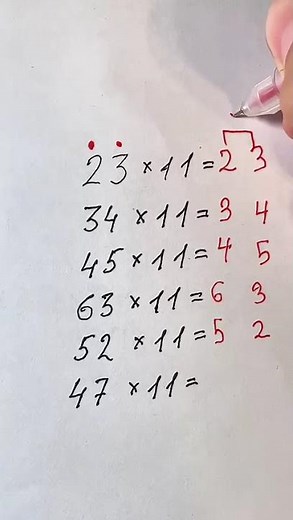 23 × 11 = 2 3
34 × 11 = 3 4
45 × 11 = 4 5
63 × 11 = 6 3
52 × 11 = 5 2
47 × 11 =